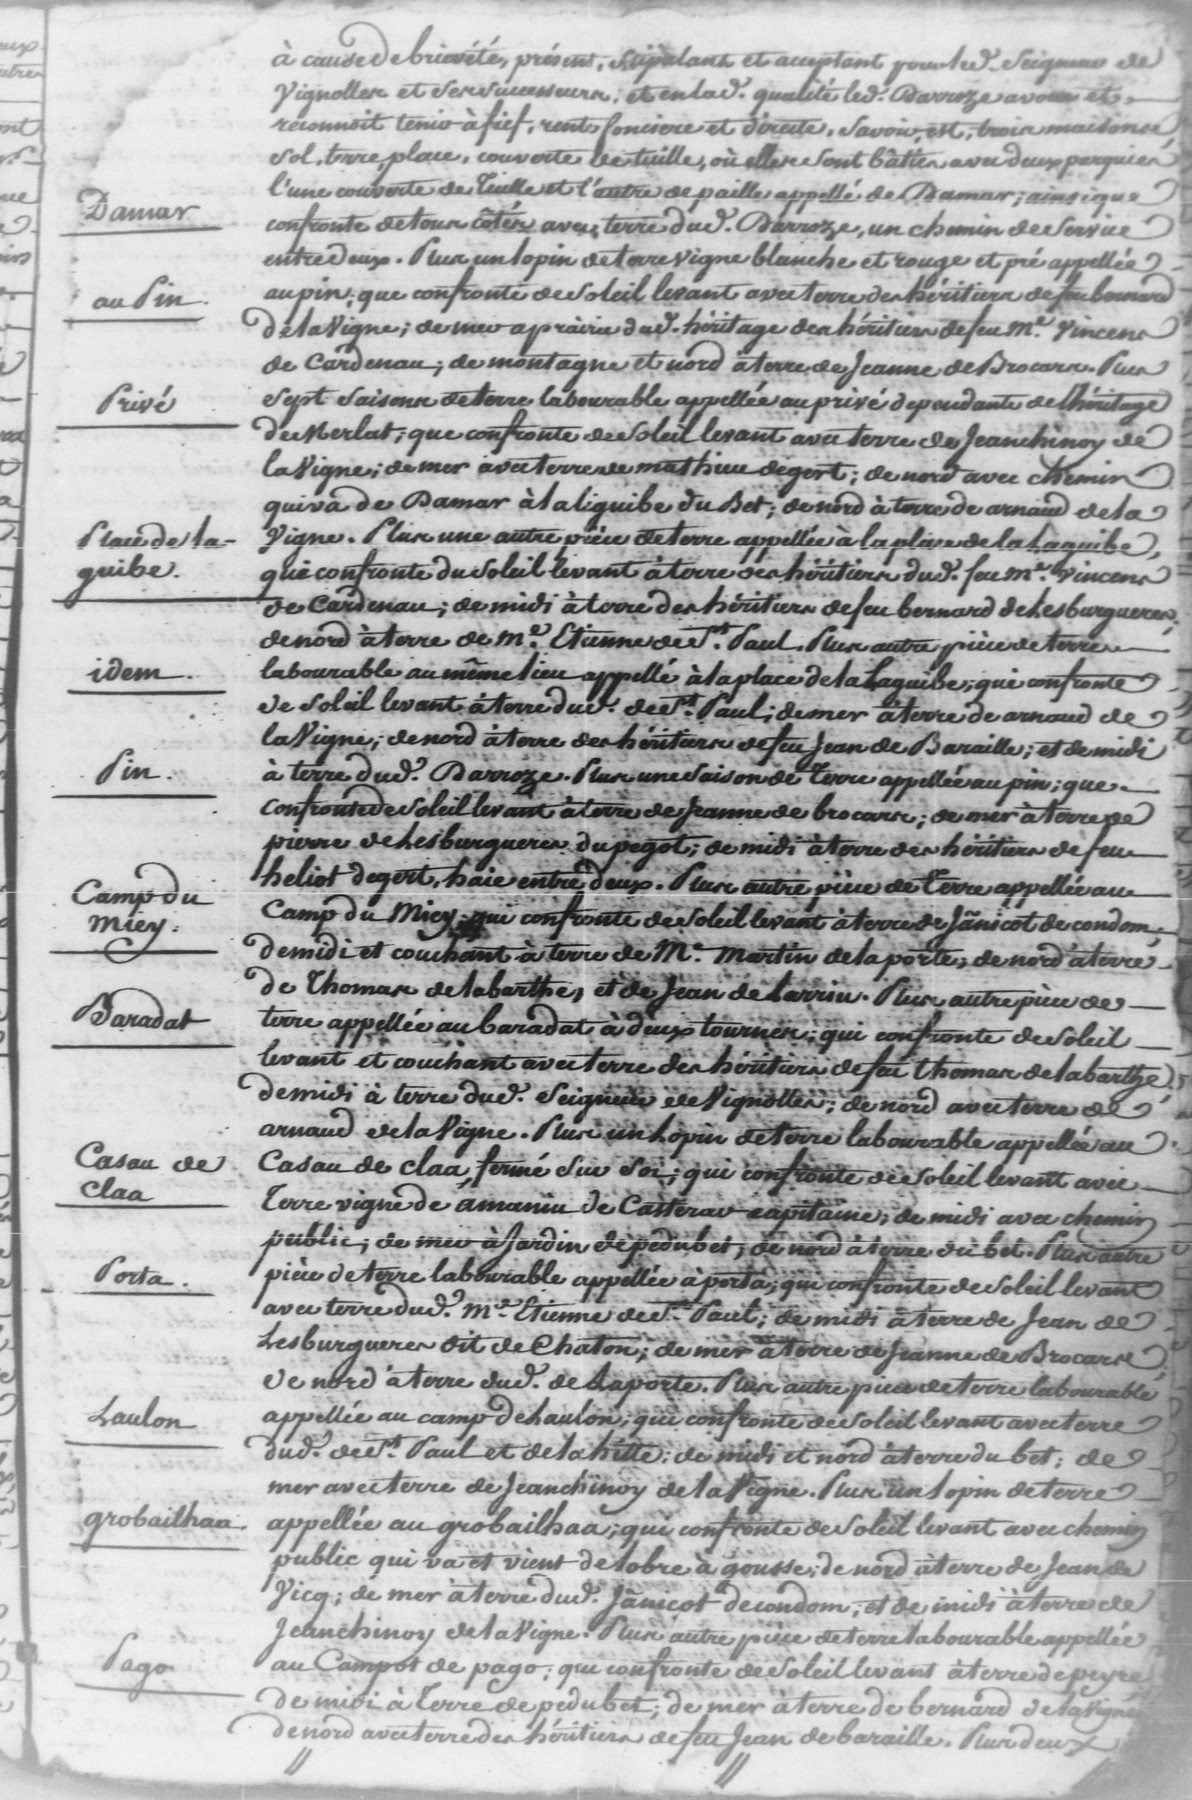 à cause de brieveté, présent, stipulant et acceptant pour led. Seigneur de
Vignolles et ses successeurs; et en lad. qualité led. Darroze avoue et
reconnoit tenir à fief, rente fonciere et directe, savoir est, trois maisons
sol, terre, place, couverte de tuille, où elles sont bâties avec deux parguies
l'une couverte de tuille et l'autre de paille appellé de Damar; ainsi que
Damar
confronte de tous côtés avec terre dud. Darroze, un chemin de service
entre deux. Plus un lopin de terre vigne blanche et rouge et pré appellée
au Pin.
au pin; que confronte de soleil levant avec terre des héritiers de feu bernard
de la Vigne; de mer a prairie dud. héritage des héritiers de feu Me. Vincens
de Cardenau; de montagne et nord à terre de Jeanne de Brocars. Plus
Privé
sept saisons de terre labourable appellée au privé dependante de l'héritage
de Merlat; que confronte de soleil levant avec terre de Jeanchinoy de
la Vigne; de mer avec terre de mathieu degert; de nord avec chemin
qui va de Damar à la liguibe du Bet; de nord à terre de arnaud de la
Place de la-
Vigne. Plus une autre piéce de terre appellée à la place de la Laguibe,
guibe.
que confronte du soleil levant à terre des héritiers dud. feu Me. Vincens
de Cardenau; de midi à terre des héritiers de feu bernard de Lesburgueres;
de nord à terre de Me. Etienne de St. Paul. Plus autre piéce de terre
idem.
labourable au même lieu appellé à la place de la Laguibe; que confronte
de soleil levant à terre dud. de St. Paul; de mer à terre de arnaud de
la Vigne; de nord à terre des héritiers de feu Jean de Baraille; et de midi
Pin.
à terre dud. Darroze. Plus une saison de terre appellée au pin; que
confronte de soleil levant à terre de Jeanne de brocars; de mer à terre de
pierre de Lesburgueres du pegot; de midi à terre des héritiers de feu
heliot degert, haie entre deux. Plus autre piéce de terre appellée au
Camp du
Miey.
Camp du Miey; qui confronte de soleil levant à terre de Jânicot de condom;
de midi et couchant à terre de Me. Martin de laporte; de nord à terre
de Thomas de labarthe, et de Jean de Larriu. Plus autre piéce de
Baradat
terre appellée au baradat à deux tournes; qui confronte de soleil
levant et couchant avec terre des héritiers de feu thomas de labarthe
de midi à terre dud. Seigneur de Vignolles; de nord avec terre de
arnaud de la Vigne. Plus un lopin de terre labourable appellée au
Casau de
claa
Casau de claa, fermé sur soi; qui confronte de soleil levant avec
terre vigne de amaniu de Casterav capitaine; de midi avec chemin
public; de mer à jardin de pedubet; de nord à terre du bet. Plus autre
Porta.
piéce de terre labourable appellée à porta; qui confronte de soleil levant
avec terre dud. Me. Etienne de St. Paul; de midi à terre de Jean de
Lesburgueres dit de Chaton; de mer à terre de Jeanne de Brocars
de nord à terre dud. de Laporte. Plus autre piece de terre labourable
Laulon
appellée au camp de Laulon; qui confronte de soleil levant avec terre
dud. de St. Paul et de la hitte; de midi et nord à terre du bet; de
mer avec terre de Jeanchinoy de la Vigne. Plus un lopin de terre
grobailhaa.
appellée au grobailhaa; qui confronte de soleil levant avec chemin
public qui va et vient de lobre à gousse; de nord à terre de Jean de
Vicq; de mer à terre dud. Jânicot de condom; et de midi à terre de
Jeanchinoy de la Vigne. Plus autre piéce de terre labourable appellée
Pago
au Campot de pago; qui confronte de soleil levant à terre de peyre
de midi à terre de pedubet; de mer à terre de bernard de la Vigne
de nord avec terre des héritiers de feu Jean de baraille. Plus deux